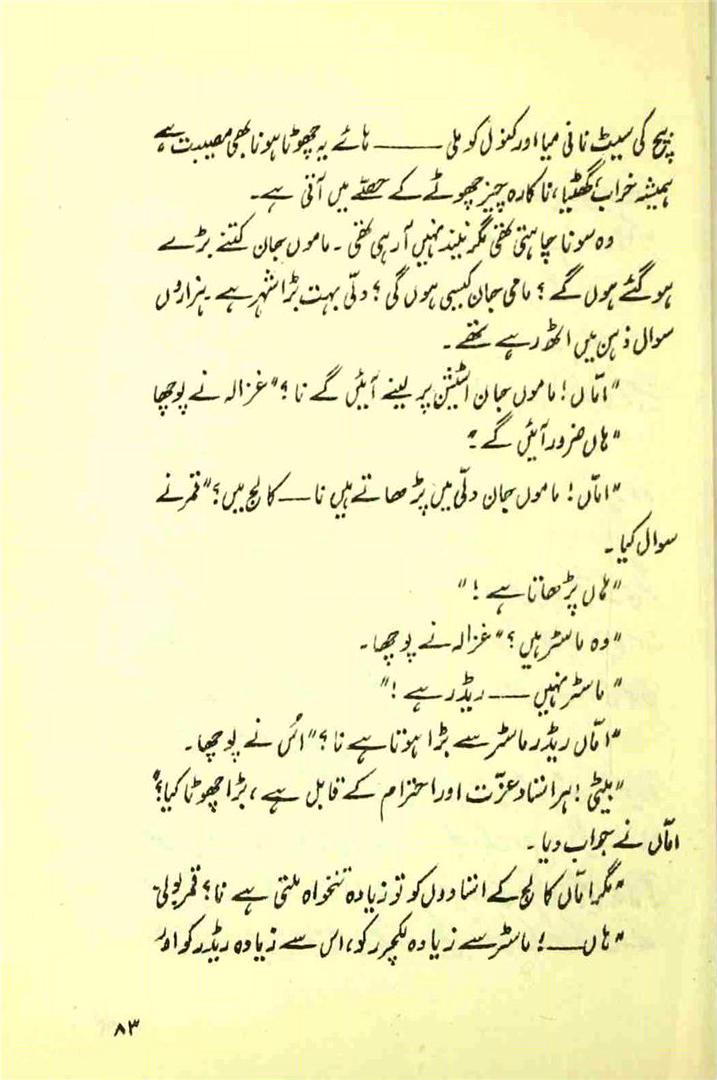 پیچ کی سیٹ نانی میا اور کنول کو ملی ——— ہائے یہ چھوٹا ہونا بھی مصیبت ہے
ہمیشہ خراب، گھٹیا، ناکارہ چیز چھوٹے کے حصّے میں آتی ہے۔
وہ سونا چاہتی تھی مگر نیند نہیں آ رہی تھی۔ ماموں جان کتنے بڑے
ہو گئے ہوں گے؟ مامی جان کیسی ہوں گی؟ دلّی بہت بڑا شہر ہے۔ ہزاروں
سوال ذہن میں اٹھ رہے تھے۔
"امّاں! ماموں جان اسٹیشن پر لینے آئیں گے نا؟" غزالہ نے پوچھا
"ہاں ضرور آئیں گے۔"
"امّاں! ماموں جان دلّی میں پڑھاتے ہیں نا —— کالج میں؟" قمر نے
سوال کیا۔
"ہاں پڑھاتا ہے!"
"وہ ماسٹر ہیں؟" غزالہ نے پوچھا۔
"ماسٹر نہیں —— ریڈر ہے!"
"امّاں ریڈر ماسٹر سے بڑا ہوتا ہے نا؟" اُس نے پوچھا۔
"بیٹی! ہر استاد عزّت اور احترام کے قابل ہے، بڑا چھوٹا کیا؟"
امّاں نے جواب دیا۔
"مگر امّاں کالج کے استادوں کو تو زیادہ تنخواہ ملتی ہے نا؟ قمر بولی۔
"ہاں ——! ماسٹر سے زیادہ لکچرر کو، اس سے زیادہ ریڈر کو اور
۸۳